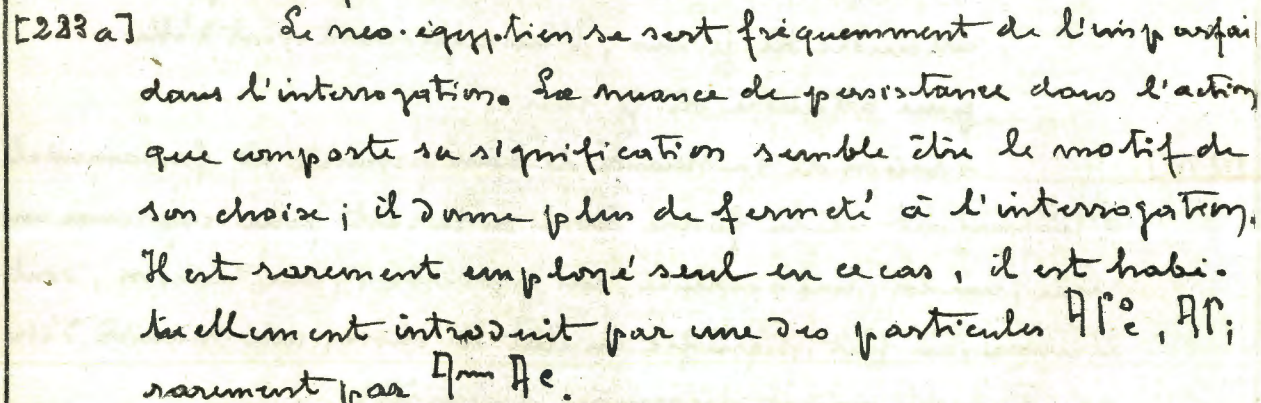 [233a] Le néo-égyptien se sert fréquemment de l'imparfai
dans l'interrogation. La nuance de persistance dans l'action
que comporte sa signification semble être le motif de
son choix; il donne plus de fermeté à l'interrogation.
Il est rarement employé seul en ce cas, il est habi-
tuellement introduit par une des particules
rarement par